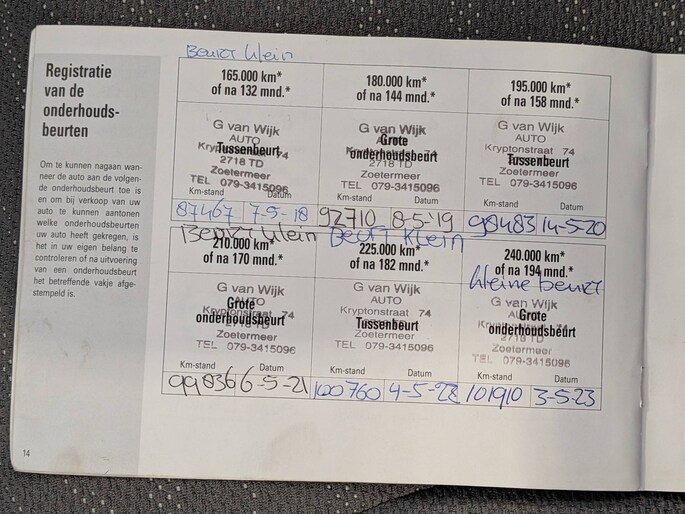 Beurt klein
Registratie
van de
onderhouds-
beurten
Om te kunnen nagaan wan-
neer de auto aan de volgen-
de onderhoudsbeurt toe is
en om bij verkoop van uw
auto te kunnen aantonen
welke onderhoudsbeurten
uw auto heeft gekregen, is
het in uw eigen belang te
controleren of na uitvoering
van een onderhoudsbeurt
het betreffende vakje afge-
stempeld is.
165.000 km*
of na 132 mnd.*
G van Wijk
AUTO
Kryptonstraat 74
Tussenbeurt
2718 TD
Zoetermeer
TEL 079-3415096
Km-stand Datum
87467 7-5-18
180.000 km*
of na 144 mnd.*
G van Wijk
AUTO
Grote
Kryptonstraat 74
onderhoudsbeurt
2718 TD
Zoetermeer
TEL 079-3415096
Km-stand Datum
92710 8-5-'19
195.000 km*
of na 158 mnd.*
G van Wijk
AUTO
Kryptonstraat 74
Tussenbeurt
2718 TD
Zoetermeer
TEL 079-3415096
Km-stand Datum
98483 14-5-20
Beurt klein
210.000 km*
of na 170 mnd.*
G van Wijk
AUTO
Grote
Kryptonstraat 74
onderhoudsbeurt
2718 TD
Zoetermeer
TEL 079-3415096
Km-stand Datum
99836 6-5-21
Beurt klein
225.000 km*
of na 182 mnd.*
G van Wijk
AUTO
Kryptonstraat 74
Tussenbeurt
Zoetermeer
TEL 079-3415096
Km-stand Datum
100760 4-5-22
240.000 km*
of na 194 mnd.*
kleine beurt
G van Wijk
AUTO
Grote
Kryptonstraat 74
onderhoudsbeurt
2718 TD
Zoetermeer
TEL 079-3415096
Km-stand Datum
101910 3-5-23
14